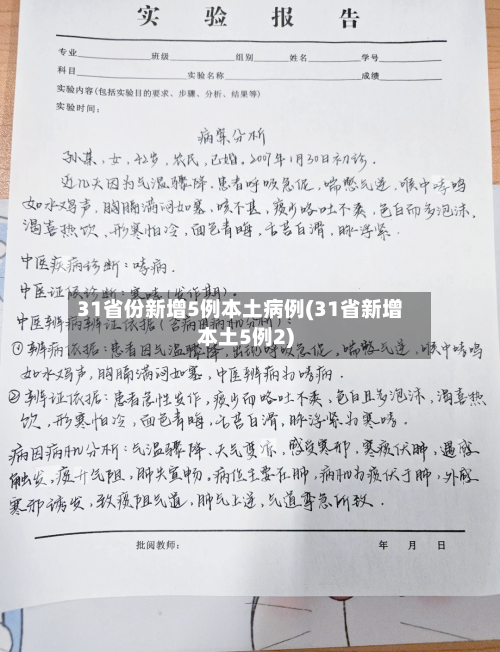 实 验 报 告
专业 班级 组别 姓名 学号
科目 实验名称 成绩
实验内容(包括实验目的要求、步骤、分析、结果等)
实验时间：
病案分析
孙某，女，42岁，农民，已婚，2007年1月30日初诊。
近几天因为气温骤降，患者呼吸急促，喘憋气逆，喉中哮鸣
如水鸡声，胸膈满闷如塞，咳不甚，痰少咯吐不爽，色白而多泡沫，
渴喜热饮、形寒怕冷，面色青晦，舌苔白滑，脉浮紧.
中医疾病诊断：哮病.
中医证候诊断：寒哮(发作期).
31省份新增5例本土病例(31省新增
本土5例2)
中医辨病辨证依据(含病因病机分析)：
①辨病依据：患者因气温骤降，出现呼吸急促，喘憋气逆，喉中哮鸣
如水鸡声，胸膈满闷如塞，中医辨病为哮病.
②辨证依据：患者急性发作，痰少而咯吐不爽，色白且多泡沫，渴喜热
饮，形寒怕冷，面色青晦，舌苔白滑，脉浮紧为寒哮.
病因病机分析：气温骤降、天气变凉，感受寒邪，寒痰伏肺，遇感
触发，痰升气阻，肺失宣畅。病位主要在肺，病机为痰伏于肺，外感
寒邪诱发，致痰阻气道，肺气上逆，气道挛急所致.
批阅教师： 年 月 日